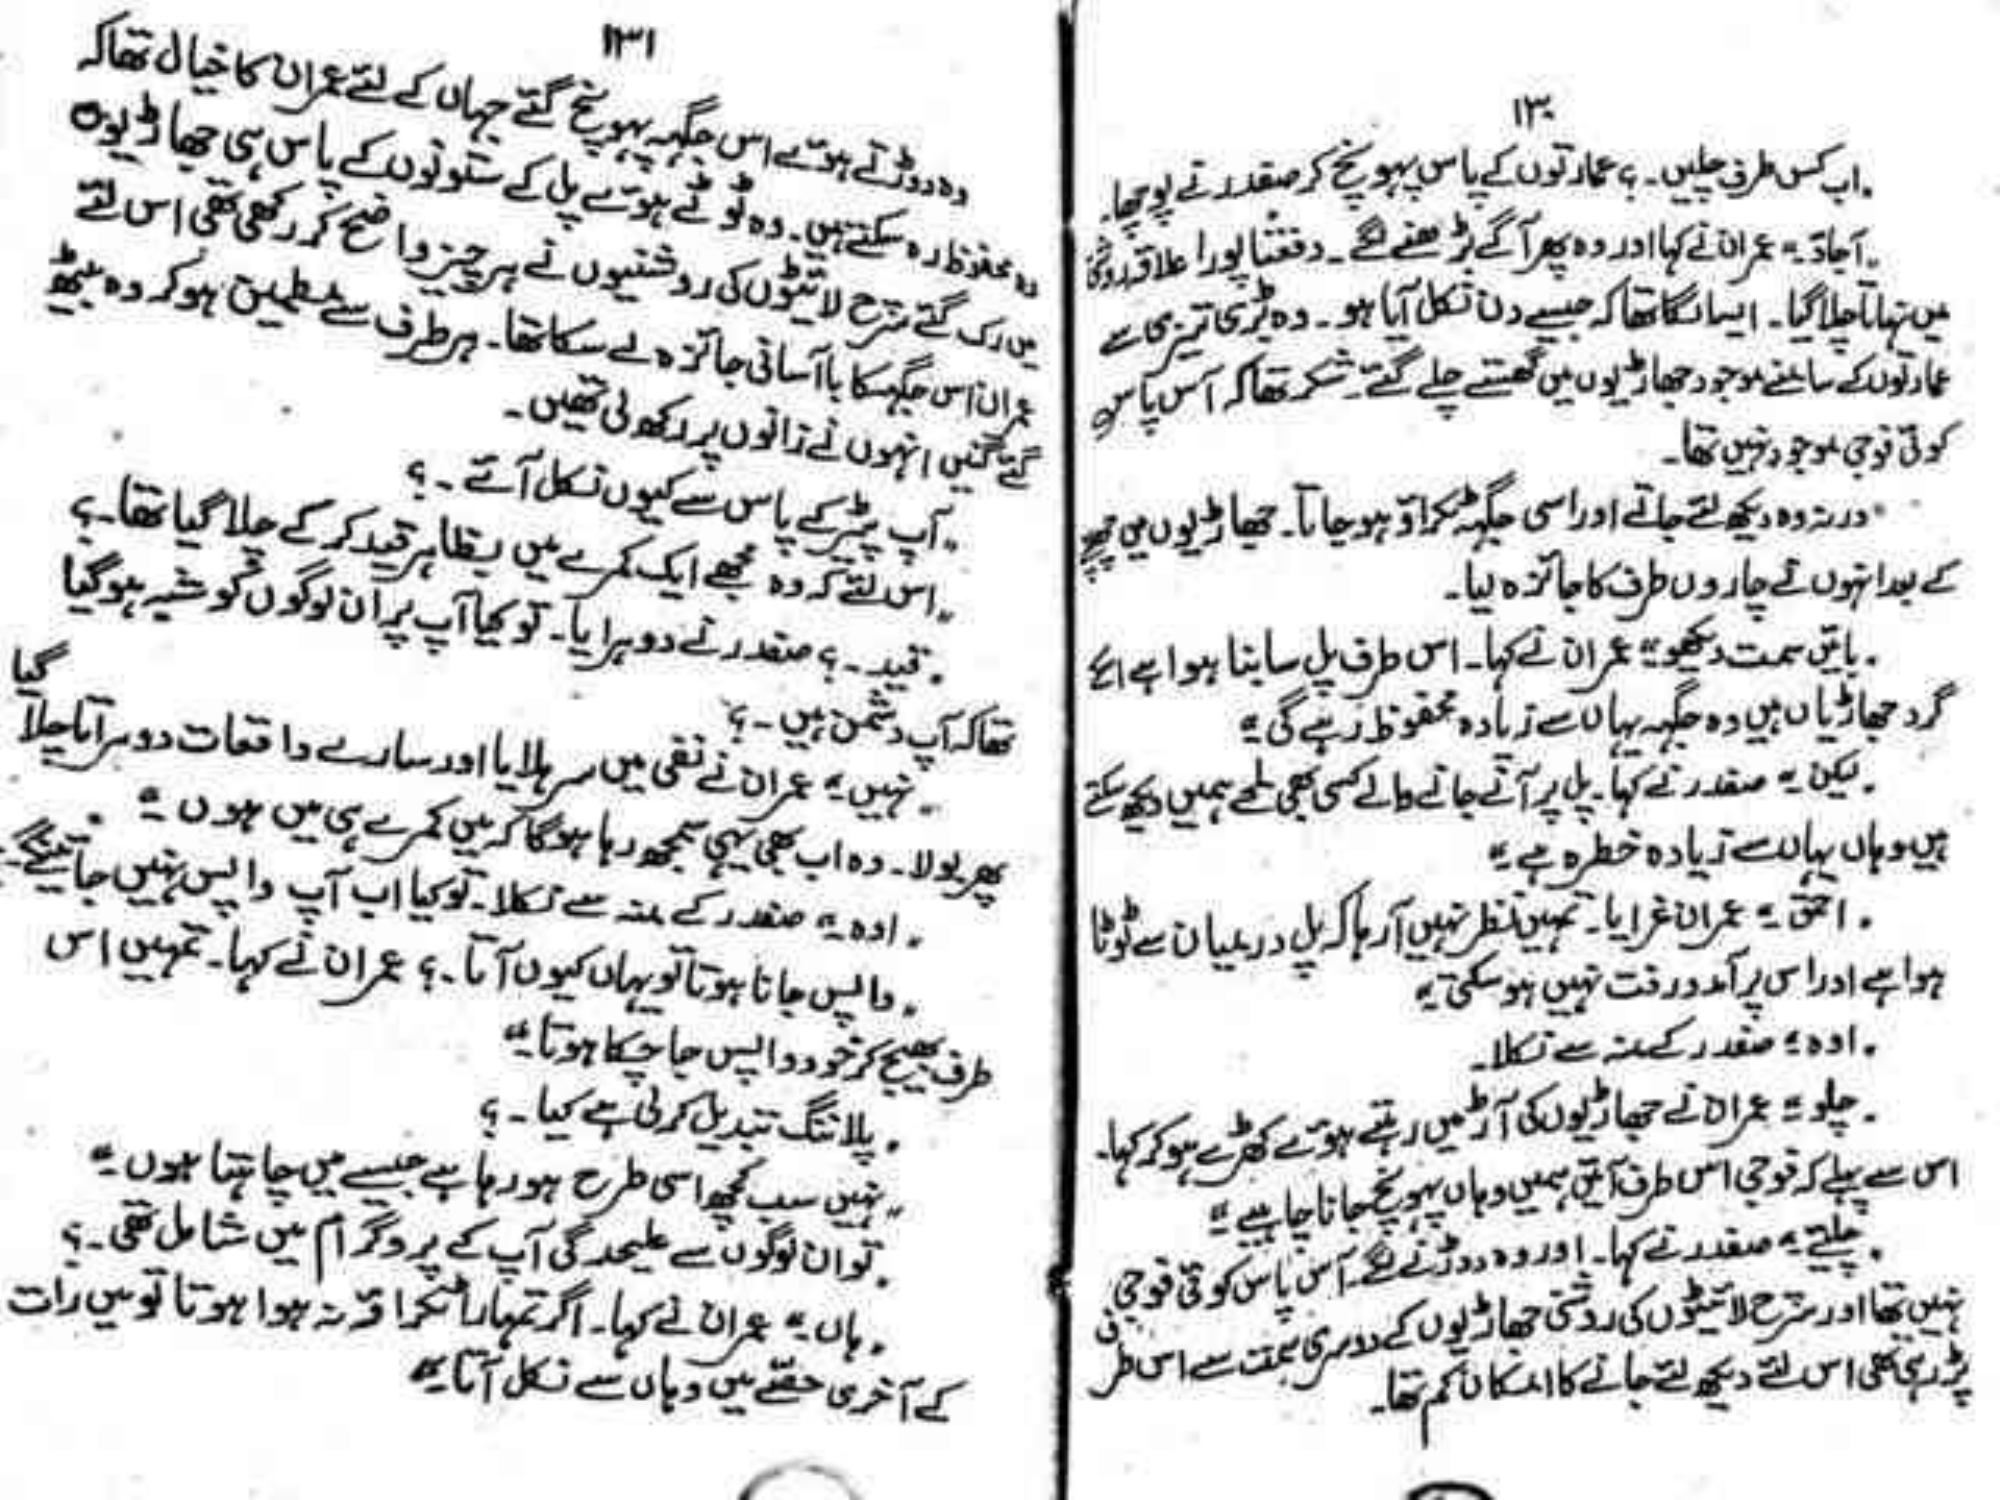 ۱۳۰
"اب کس طرف چلیں۔؟ عمارتوں کے پاس پہونچ کر صفدر نے پوچھا۔
"آجاؤ۔" عمران نے کہا اور وہ پھر آگے بڑھنے لگے۔ دفعتاً پورا علاقہ روشنی
میں نہاتا چلا گیا۔ ایسا لگا تھا کہ جیسے دن نکل آیا ہو۔ وہ بڑی تیزی سے
عمارتوں کے سامنے موجود جھاڑیوں میں گھستے چلے گئے۔ شکر تھا کہ آس پاس
کوئی فوجی موجود نہیں تھا۔
"ورنہ وہ دیکھ لئے جاتے اور اسی جگہہ ٹکراؤ ہو جاتا۔ جھاڑیوں میں چھپنے
کے بعد انہوں نے چاروں طرف کا جائزہ لیا۔
"بائیں سمت دیکھو۔" عمران نے کہا۔ اس طرف پل سا بنا ہوا ہے اسکے
گرد جھاڑیاں ہیں وہ جگہہ یہاں سے زیادہ محفوظ رہے گی۔"
"لیکن۔" صفدر نے کہا۔ پل پر آنے جانے والے کسی بھی لمحے ہمیں دیکھ سکتے
ہیں وہاں یہاں سے زیادہ خطرہ ہے۔"
"احمق۔" عمران غرایا۔ تمہیں نظر نہیں آرہا کہ پل درمیان سے ٹوٹا
ہوا ہے اور اس پر آمدورفت نہیں ہوسکتی۔"
"اوہ۔" صفدر کے منہ سے نکلا۔
"چلو۔" عمران نے جھاڑیوں کی آڑ میں رہتے ہوئے کھڑے ہو کر کہا۔
اس سے پہلے کہ فوجی اس طرف آئیں ہمیں وہاں پہونچ جانا چاہیے۔"
"چلئے۔" صفدر نے کہا۔ اور وہ دوڑنے لگے۔ آس پاس کوئی فوجی
نہیں تھا اور سرچ لائیٹوں کی روشنی جھاڑیوں کے دوسری سمت سے اس طرف
پڑ رہی تھی اس لئے دیکھ لئے جانے کا امکان کم تھا۔
۱۳۱
وہ دوڑتے ہوئے اس جگہہ پہونچ گئے جہاں کے لئے عمران کا خیال تھا کہ
وہ محفوظ رہ سکتے ہیں۔ وہ ٹوٹے ہوئے پل کے ستونوں کے پاس ہی جھاڑیوں
میں رک گئے سرچ لائیٹوں کی روشنیوں نے ہر چیز واضح کر رکھی تھی اس لئے
عمران اس جگہہ کا باآسانی جائزہ لے سکا تھا۔ ہر طرف سے مطمئن ہو کر وہ بیٹھ
گئے گنیں انہوں نے زانوں پر رکھ لی تھیں۔
"آپ پیٹر کے پاس سے کیوں نکل آئے۔؟
"اس لئے کہ وہ مجھے ایک کمرے میں بظاہر قید کر کے چلا گیا تھا۔؟
"قید۔؟ صفدر نے دوہرایا۔ تو کیا آپ پر ان لوگوں کو شبہ ہو گیا
تھا کہ آپ دشمن ہیں۔؟
"نہیں۔" عمران نے نفی میں سر ہلایا اور سارے واقعات دوہراتا چلا گیا
پھر بولا۔ وہ اب بھی یہی سمجھ رہا ہوگا کہ میں کمرے ہی میں ہوں۔"
"اوہ۔" صفدر کے منہ سے نکلا۔ تو کیا اب آپ واپس نہیں جائینگے۔
"واپس جانا ہوتا تو یہاں کیوں آتا۔؟ عمران نے کہا۔ تمہیں اس
طرف بھیج کر خود واپس جا چکا ہوتا۔"
"پلاننگ تبدیل کر لی ہے کیا۔؟
"نہیں سب کچھ اسی طرح ہو رہا ہے جیسے میں چاہتا ہوں۔"
"تو ان لوگوں سے علیحدگی آپ کے پروگرام میں شامل تھی۔؟
"ہاں۔" عمران نے کہا۔ اگر تمہارا ٹکراؤ نہ ہوا ہوتا تو میں رات
کے آخری حصے میں وہاں سے نکل آتا۔"